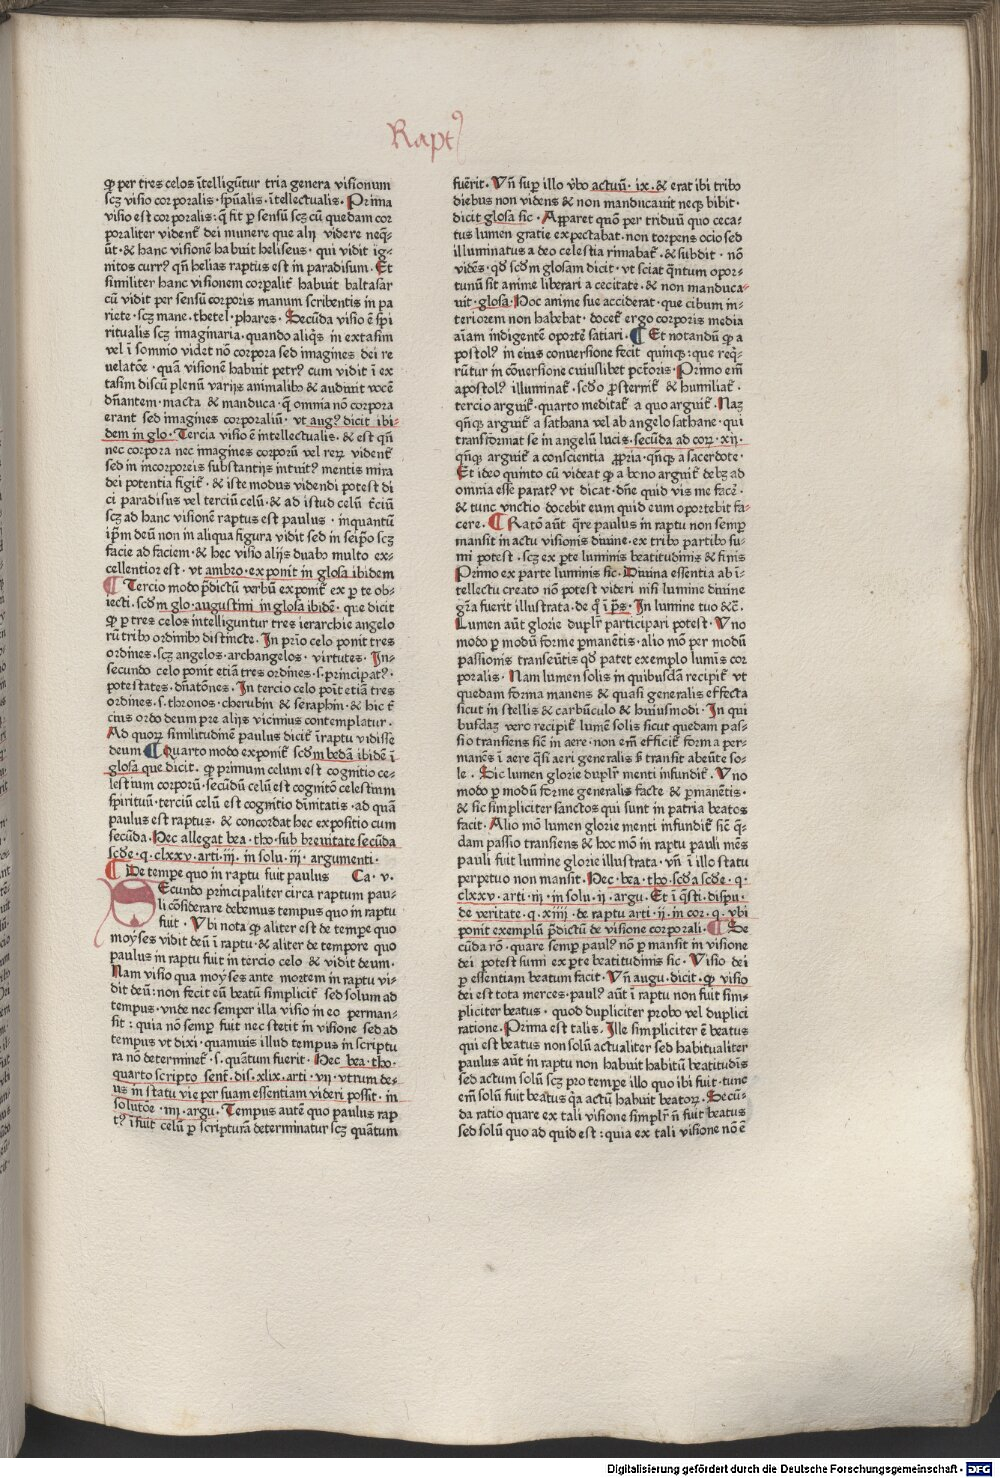 Raptꝰ
ꝙ per tres celos ĩtelligũtur tria genera visionum
scꝫ visio corporalis · spũalis · ĩtellectualis · Prima
visio est corporalis: q̃ fit ꝑ sensũ scꝫ cũ quedam cor
poraliter vident̃ dei munere que alij videre neq̃-
ũt · & hanc visionẽ habuit heliseus · qui vidit ig-
nitos curr⁹ qñ helias raptus est in paradisum · Et
similiter hanc visionem corpalit̃ habuit baltasar
cũ vidit per sensũ corporis manum scribentis in pa
riete · scꝫ mane · thetel · phares · Secũda visio ẽ spi
ritualis scꝫ imaginaria · quando aliq̃s in extasim
vel ĩ somnio videt nõ corpora sed imagines dei re
uelatõe · quã visionẽ habuit petr⁹ cum vidit ĩ ex
tasim discũ plenũ varijs animalibꝰ & audiuit vocẽ
dñantem · macta & manduca · q̃ omnia nõ corpora
erant sed imagines corporaliũ · vt aug⁹ dicit ibi-
dem in glo · Tercia visio ẽ intellectualis · & est qñ
nec corpora nec imagines corporũ vel rerꝝ vident̃
sed in incorporeis substantijs intuit⁹ mentis mira
dei potentia figit̃ · & iste modus videndi potest di
ci paradisus vel terciũ celũ · & ad istud celũ t̃ciũ
scꝫ ad hanc visionẽ raptus est paulus · inquantũ
ip̃m deũ non in aliqua figura vidit sed in seip̃o scꝫ
facie ad faciem · & hec visio alijs duabꝰ multo ex-
cellentior est · vt ambro · exponit in glosa ibidem
¶ Tercio modo p̃dictũ verbũ exponit̃ ex ꝑte ob-
iecti · scd̃m glo · augustini in glosa ibidẽ · que dicit
ꝙ ꝑ tres celos intelliguntur tres ierarchie angelo
rũ tribꝰ ordinibꝰ distincte · In prĩo celo ponit tres
ordines · scꝫ angelos · archangelos · virtutes · In-
secundo celo ponit etiã tres ordines · s · principat⁹ ·
potestates · dñatõnes · In tercio celo poĩt etiã tres
ordines · s · thronos · cherubin & seraphin · & hic t̃
cius ordo deum pre alijs vicinius contemplatur ·
Ad quorꝝ similitudinẽ paulus dicit̃ ĩ raptu vidisse
deum ¶ Quarto modo exponit̃ scd̃m bedã ibidẽ ĩ
glosa que dicit · ꝙ primum celum est cognitio ce-
lestium corporũ · secũdũ celũ est cognitõ celestium
spirituũ · terciũ celũ est cognitio diuinitatis · ad quã
paulus est raptus · & concordat hec expositio cum
secũda · Hec allegat bea · tho · sub breuitate secũda
scd̃e · q · clxxv · arti · iij · in solu · iij · argumenti ·
¶ De tempe quo in raptu fuit paulus Ca · v ·
Secundo principaliter circa raptum pau-
li cõsiderare debemus tempus quo in raptu
fuit · Vbi nota ꝙ aliter est de tempe quo
moyses vidit deũ ĩ raptu · & aliter de tempore quo
paulus in raptu fuit in tercio celo & vidit deum ·
Nam visio qua moyses ante mortem in raptu vi-
dit deũ: non fecit eũ beatũ simplicit̃ sed solum ad
tempus · vnde nec semper illa visio in eo perman-
sit : quia nõ semp̱ fuit nec stetit in visione sed ad
tempus vt dixi · quamuis illud tempus in scriptu
ra nõ determinet̃ · s · quãtum fuerit · Hec bea · tho ·
quarto scripto sent̃ · dis · xlix · arti · vij · vtrum de-
us in statu vie per suam essentiam videri possit · in
solutõe · iiij · argu · Tempus autẽ quo paulus rap
t⁹ ĩ fuit celũ ꝑ scripturã determinatur scꝫ quãtum
fuẽrit · Vñ suꝑ illo v̾bo actuũ · ix · & erat ibi tribꝰ
diebus non videns & non manducauit neqꝫ bibit ·
dicit glosa sic · Apparet quõ per triduũ quo ceca-
tus lumen gratie expectabat · non torpens ocio sed
illuminatus a deo celestia rimabat̃ · & subdit · nõ
vidẽs · qđ scd̃m glosam dicit · vt sciat q̃ntum opor-
tunũ sit anime liberari a cecitate · & non manduca-
uit · glosa · Hoc anime sue acciderat · que cibum in-
teriorem non habebat · docet̃ ergo corporis media
aĩam indigentẽ oporte satiari · ¶ Et notandũ ꝙ a
postol⁹ in eius conuersione fecit quinqꝫ : que req̃-
rũtur in cõuersione cuiuslibet pct̃oris · Primo em̃
apostol⁹ illuminat̃ · scd̃o ꝓsternit̃ & humiliat̃ ·
tercio arguit̃ · quarto meditat̃ a quo arguit̃ · Naꝫ
qñqꝫ arguit̃ a sathana vel ab angelo sathane · qui
transformat se in angelũ lucis · secũda ad corꝝ · xij ·
qñqꝫ arguit̃ a conscientia ꝓpria · qñqꝫ a sacerdote ·
Et ideo quinto cũ videat ꝙ a bono arguit̃ debꝫ ad
omnia esse parat⁹ vt dicat · dñe quid vis me face⁊ ·
& tunc vnctio docebit eum quid eum oportebit fa-
cere · ¶ Ratõ aũt q̃re paulus in raptu non semp̱
mansit in actu visionis diuine · ex tribꝰ partibꝰ su-
mi potest · scꝫ ex ꝑte luminis beatitudinis & finis
Primo ex parte luminis sic · Diuina essentia ab ĩ-
tellectu creato nõ potest videri nisi lumine diuine
gr̃a fuerit illustrata · de q̃ ĩ p̃s · In lumine tuo &c̃ ·
Lumen aũt glorie duplr̃ participari potest · Vno
modo ꝑ modũ forme ꝑmanẽtis · alio mõ per modũ
passionis transeũtis qđ patet exemplo lumis cor
poralis · Nam lumen solis in quibusdã recipit̃ vt
quedam forma manens & quasi generalis effecta
sicut in stellis & carbũculo & huiusmodi · In qui
busdaꝫ vero recipit̃ lumẽ solis sicut quedam pas-
sio transiens sic̃ in aere · non em̃ efficit̃ forma per-
manẽs ĩ aere q̃si aeri generalis s̃ transit abeũte so-
le · Sic lumen glorie duplr̃ menti infundit̃ · Vno
modo ꝑ modũ forme generalis facte & ꝑmanẽtis ·
& sic simpliciter sanctos qui sunt in patria beatos
facit · Alio mõ lumen glorie menti infundit̃ sic̃ q̃-
dam passio transiens & hoc mõ in raptu pauli mẽs
pauli fuit lumine glorie illustrata · vñ ĩ illo statu
perpetuo non mansit · Hec · bea · tho · scd̃a scd̃e · q ·
clxxv · arti · iij · in solu · ij · argu · Et ĩ q̃sti · dispu ·
de veritate · q · xiiij · de raptu arti · ij · in cor · q · vbi
ponit exemplũ p̃dictũ de visione corporali · ¶ Se
cũda rõ · quare semp̱ paul⁹ nõ ꝑmansit in visione
dei potest sumi ex ꝑte beatitudinis sic · Visio dei
ꝑ essentiam beatum facit · Vñ augu · dicit · ꝙ visio
dei est tota merces · paul⁹ aũt ĩ raptu non fuit sim-
pliciter beatus · quod dupliciter probo vel duplici
ratione · Prima est talis · Ille simpliciter ẽ beatus
qui est beatus non solũ actualiter sed habitualiter
paulus aũt in raptu non habuit habitũ beatitudĩs
sed actum solũ scꝫ pro tempe illo quo ibi fuit · tunc
em̃ solũ fuit beatus q̃a actũ habuit beatorꝝ · Secũ-
da ratio quare ex tali visione simplr̃ ñ fuit beatus
sed solũ quo ad quid est : quia ex tali visione nõ ẽ
Digitalisierung gefördert durch die Deutsche Forschungsgemeinschaft - DFG